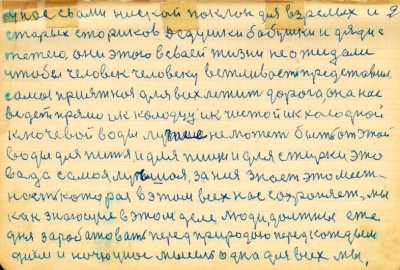 у нас с вами ниский поклон для взрослых и
старых стариков дедушки бабушки и дяди с
тетею, они этого в своей жизни не ожидали
чтобы человек человеку вежливость представил,
самая приятная для всех лежит дорога, она нас
ведет прямо и к колодцу и к чистой и к холодной
ключевой воды лучше не может быть от этой
воды для питя, и для пищи и для стирки это
вада самая лучшая, за ния знает это мест-
ность которая в этом всех нас сохроняет, мы
как знающие в этом деле люди должны еще
дня заработовать перед природою перед каждым
днём и ночю у нас мысль одна для всех мы,